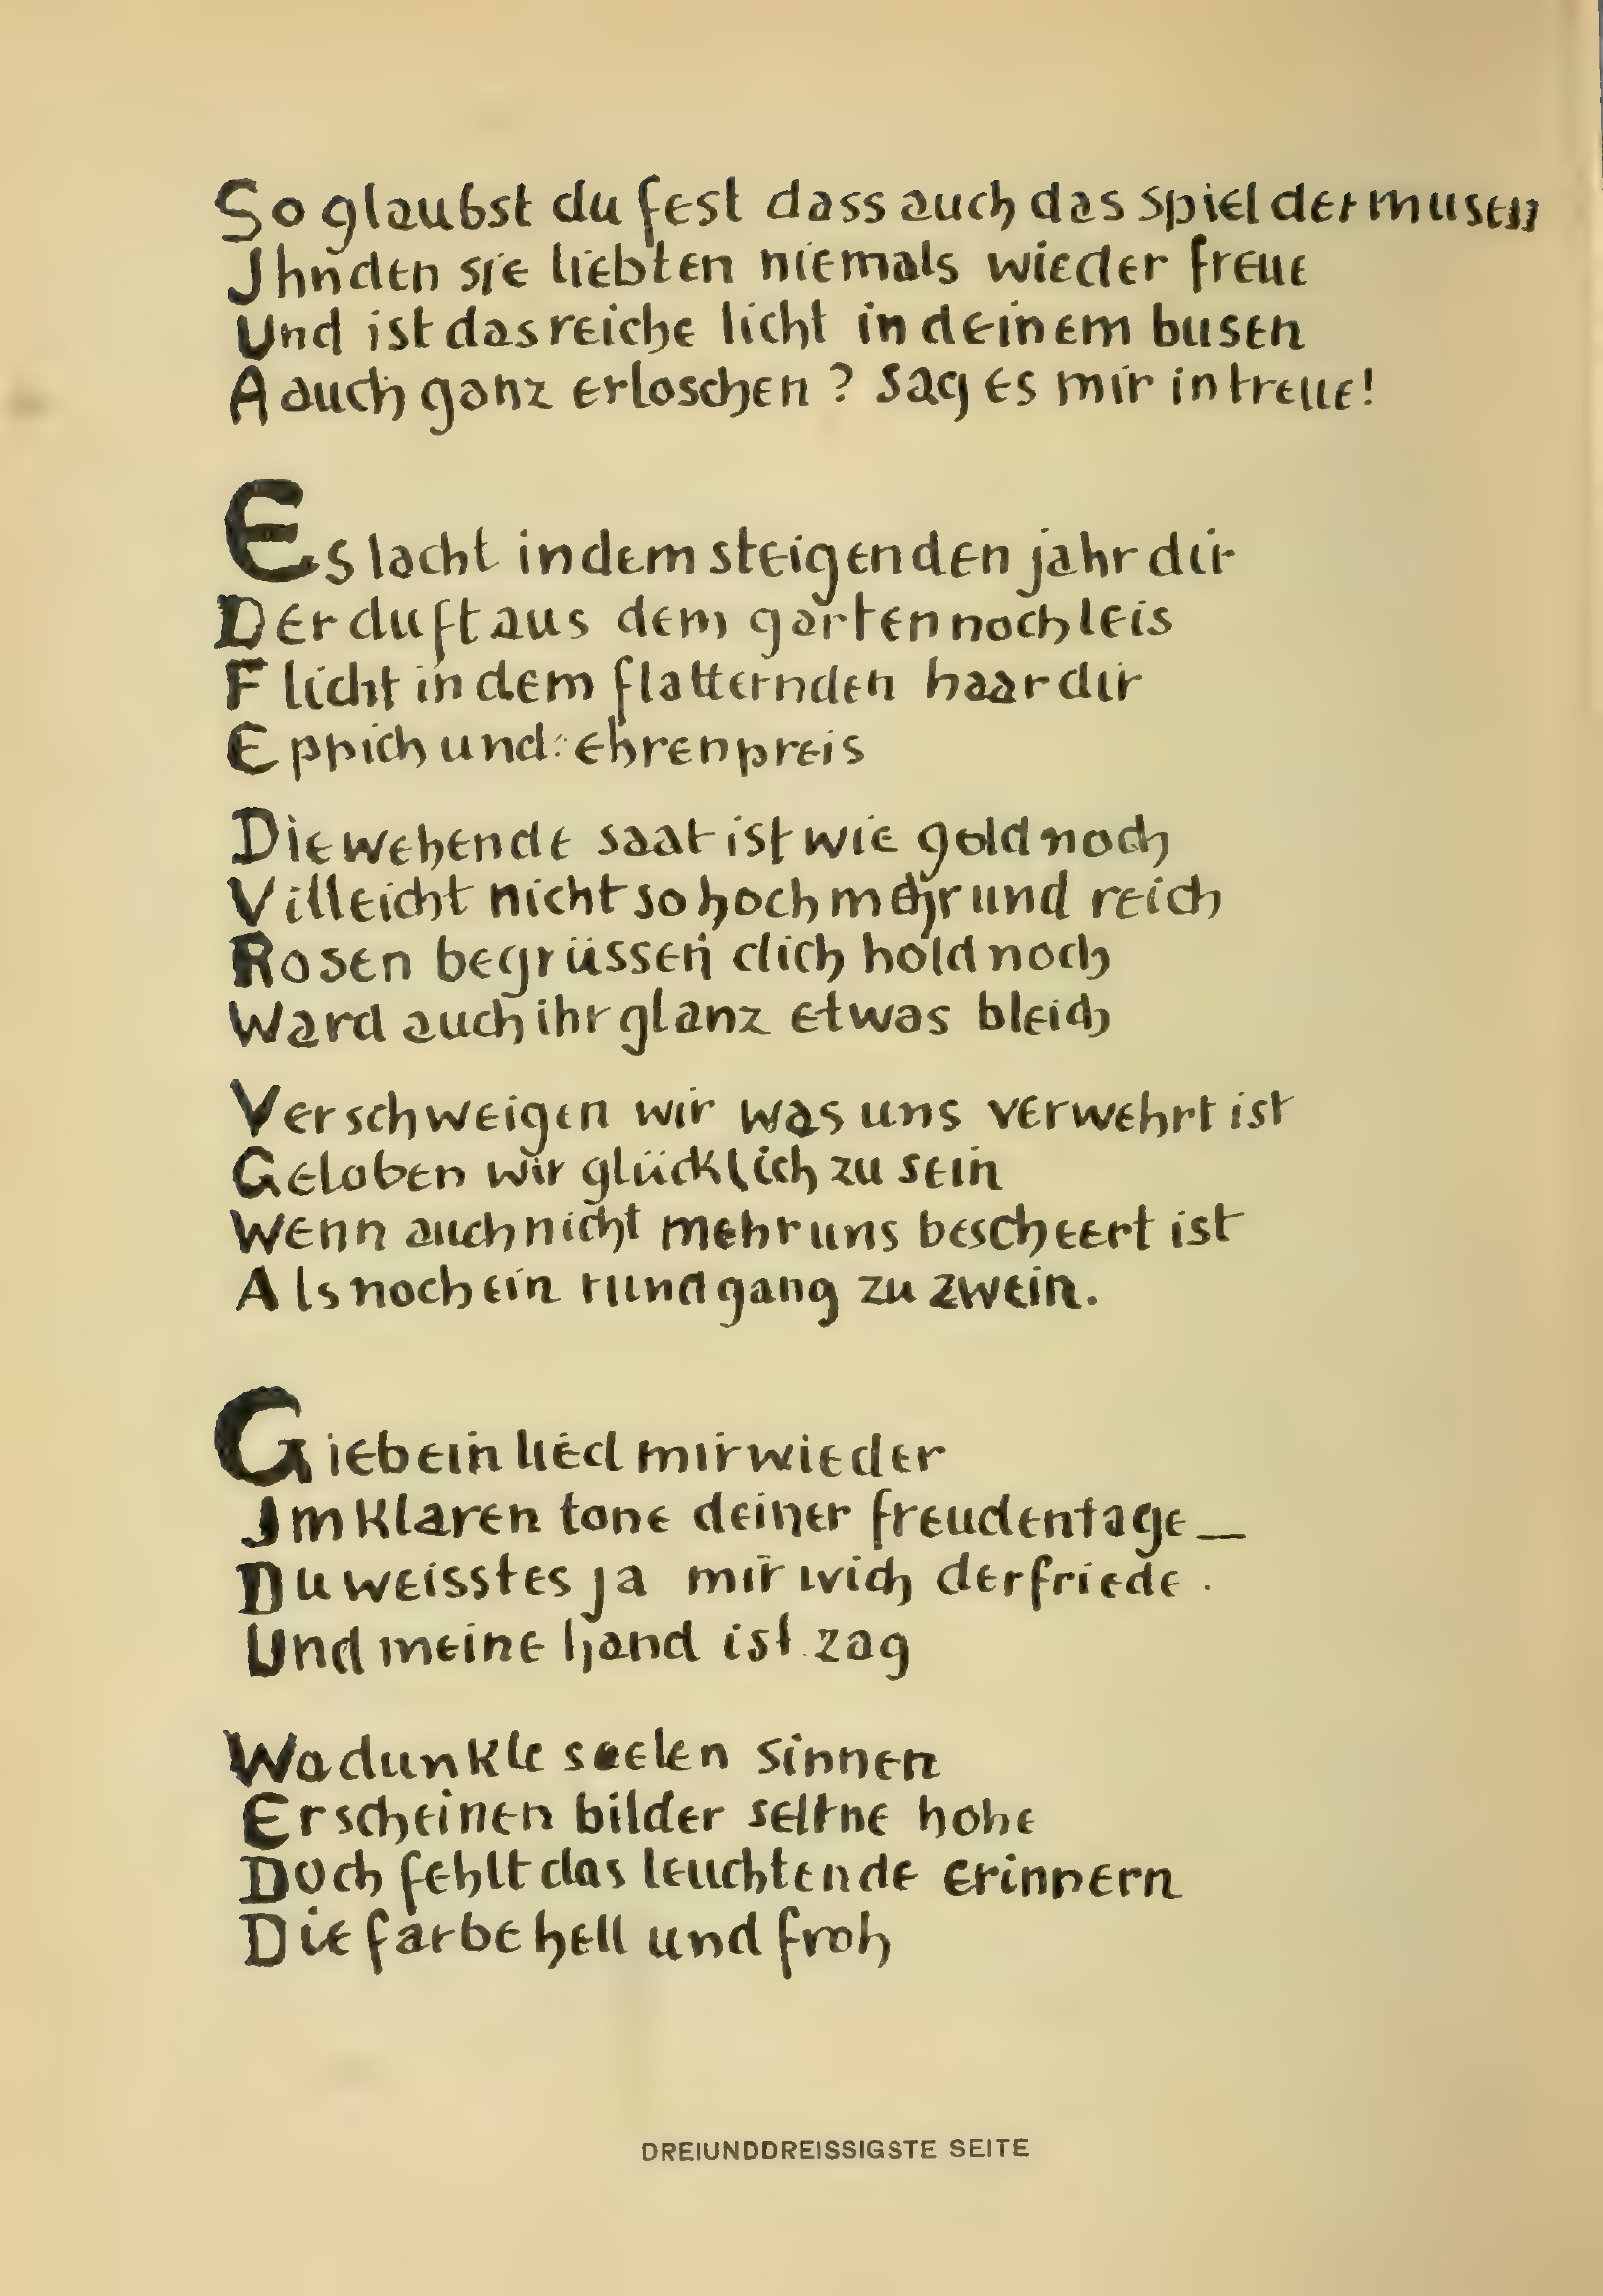 So glaubst du fest dass auch das spiel der musen
Ihn den sie liebten niemals wieder freue
Und ist das reiche licht in deinem busen
A auch ganz erloschen? sag es mir in treue!
Es lacht in dem steigenden jahr dir
Der duft aus dem garten noch leis
Flicht in dem flatternden haar dir
Eppich und ehrenpreis
Die wehende saat ist wie gold noch
Villeicht nicht so hoch mehr und reich
Rosen begrüssen dich hold noch
Ward auch ihr glanz etwas bleich
Verschweigen wir was uns verwehrt ist
Geloben wir glücklich zu sein
Wenn auch nicht mehr uns bescheert ist
Als noch ein rundgang zu zwein.
Gieb ein lied mir wieder
Im klaren tone deiner freudentage —
Du weisst es ja mir wich der friede.
Und meine hand ist zag
Wo dunkle seelen sinnen
Erscheinen bilder seltne hohe
Doch fehlt das leuchtende erinnern
Die farbe hell und froh
DREIUNDDREISSIGSTE SEITE